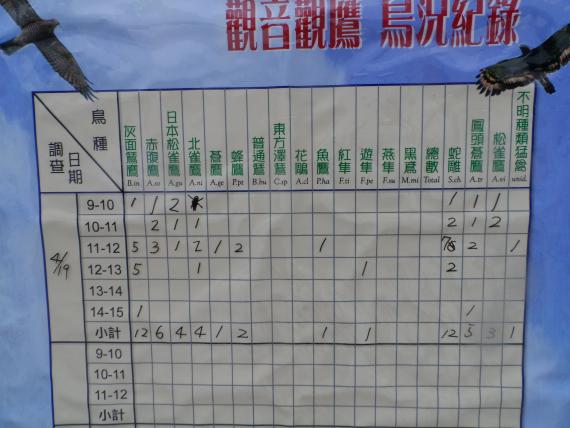 觀音觀鷹 鳥況紀錄
鳥種 灰面鵟鷹 赤腹鷹 日本松雀鷹 北雀鷹 蒼鷹 蜂鷹 普通鵟 東方澤鵟 花鵰 魚鷹 紅隼 遊隼 燕隼 黑鳶 總數 蛇鵰 鳳頭蒼鷹 松雀鷹 不明種類猛禽
調查日期 B.in A.so A.gu A.ni A.ge P.pt B.bu C.sp A.cl P.ha F.ti F.pe F.su M.mi Total S.ch A.tr A.vi unid.
9-10 1 1 2 1 1 1
10-11 2 1 1 2 1 2
4/19 11-12 5 3 1 2 1 2 1 2 1
12-13 5 1 1 2
13-14
14-15 1 1
小計 12 6 4 4 1 2 1 1 12 5 3 1
9-10
10-11
11-12
小計